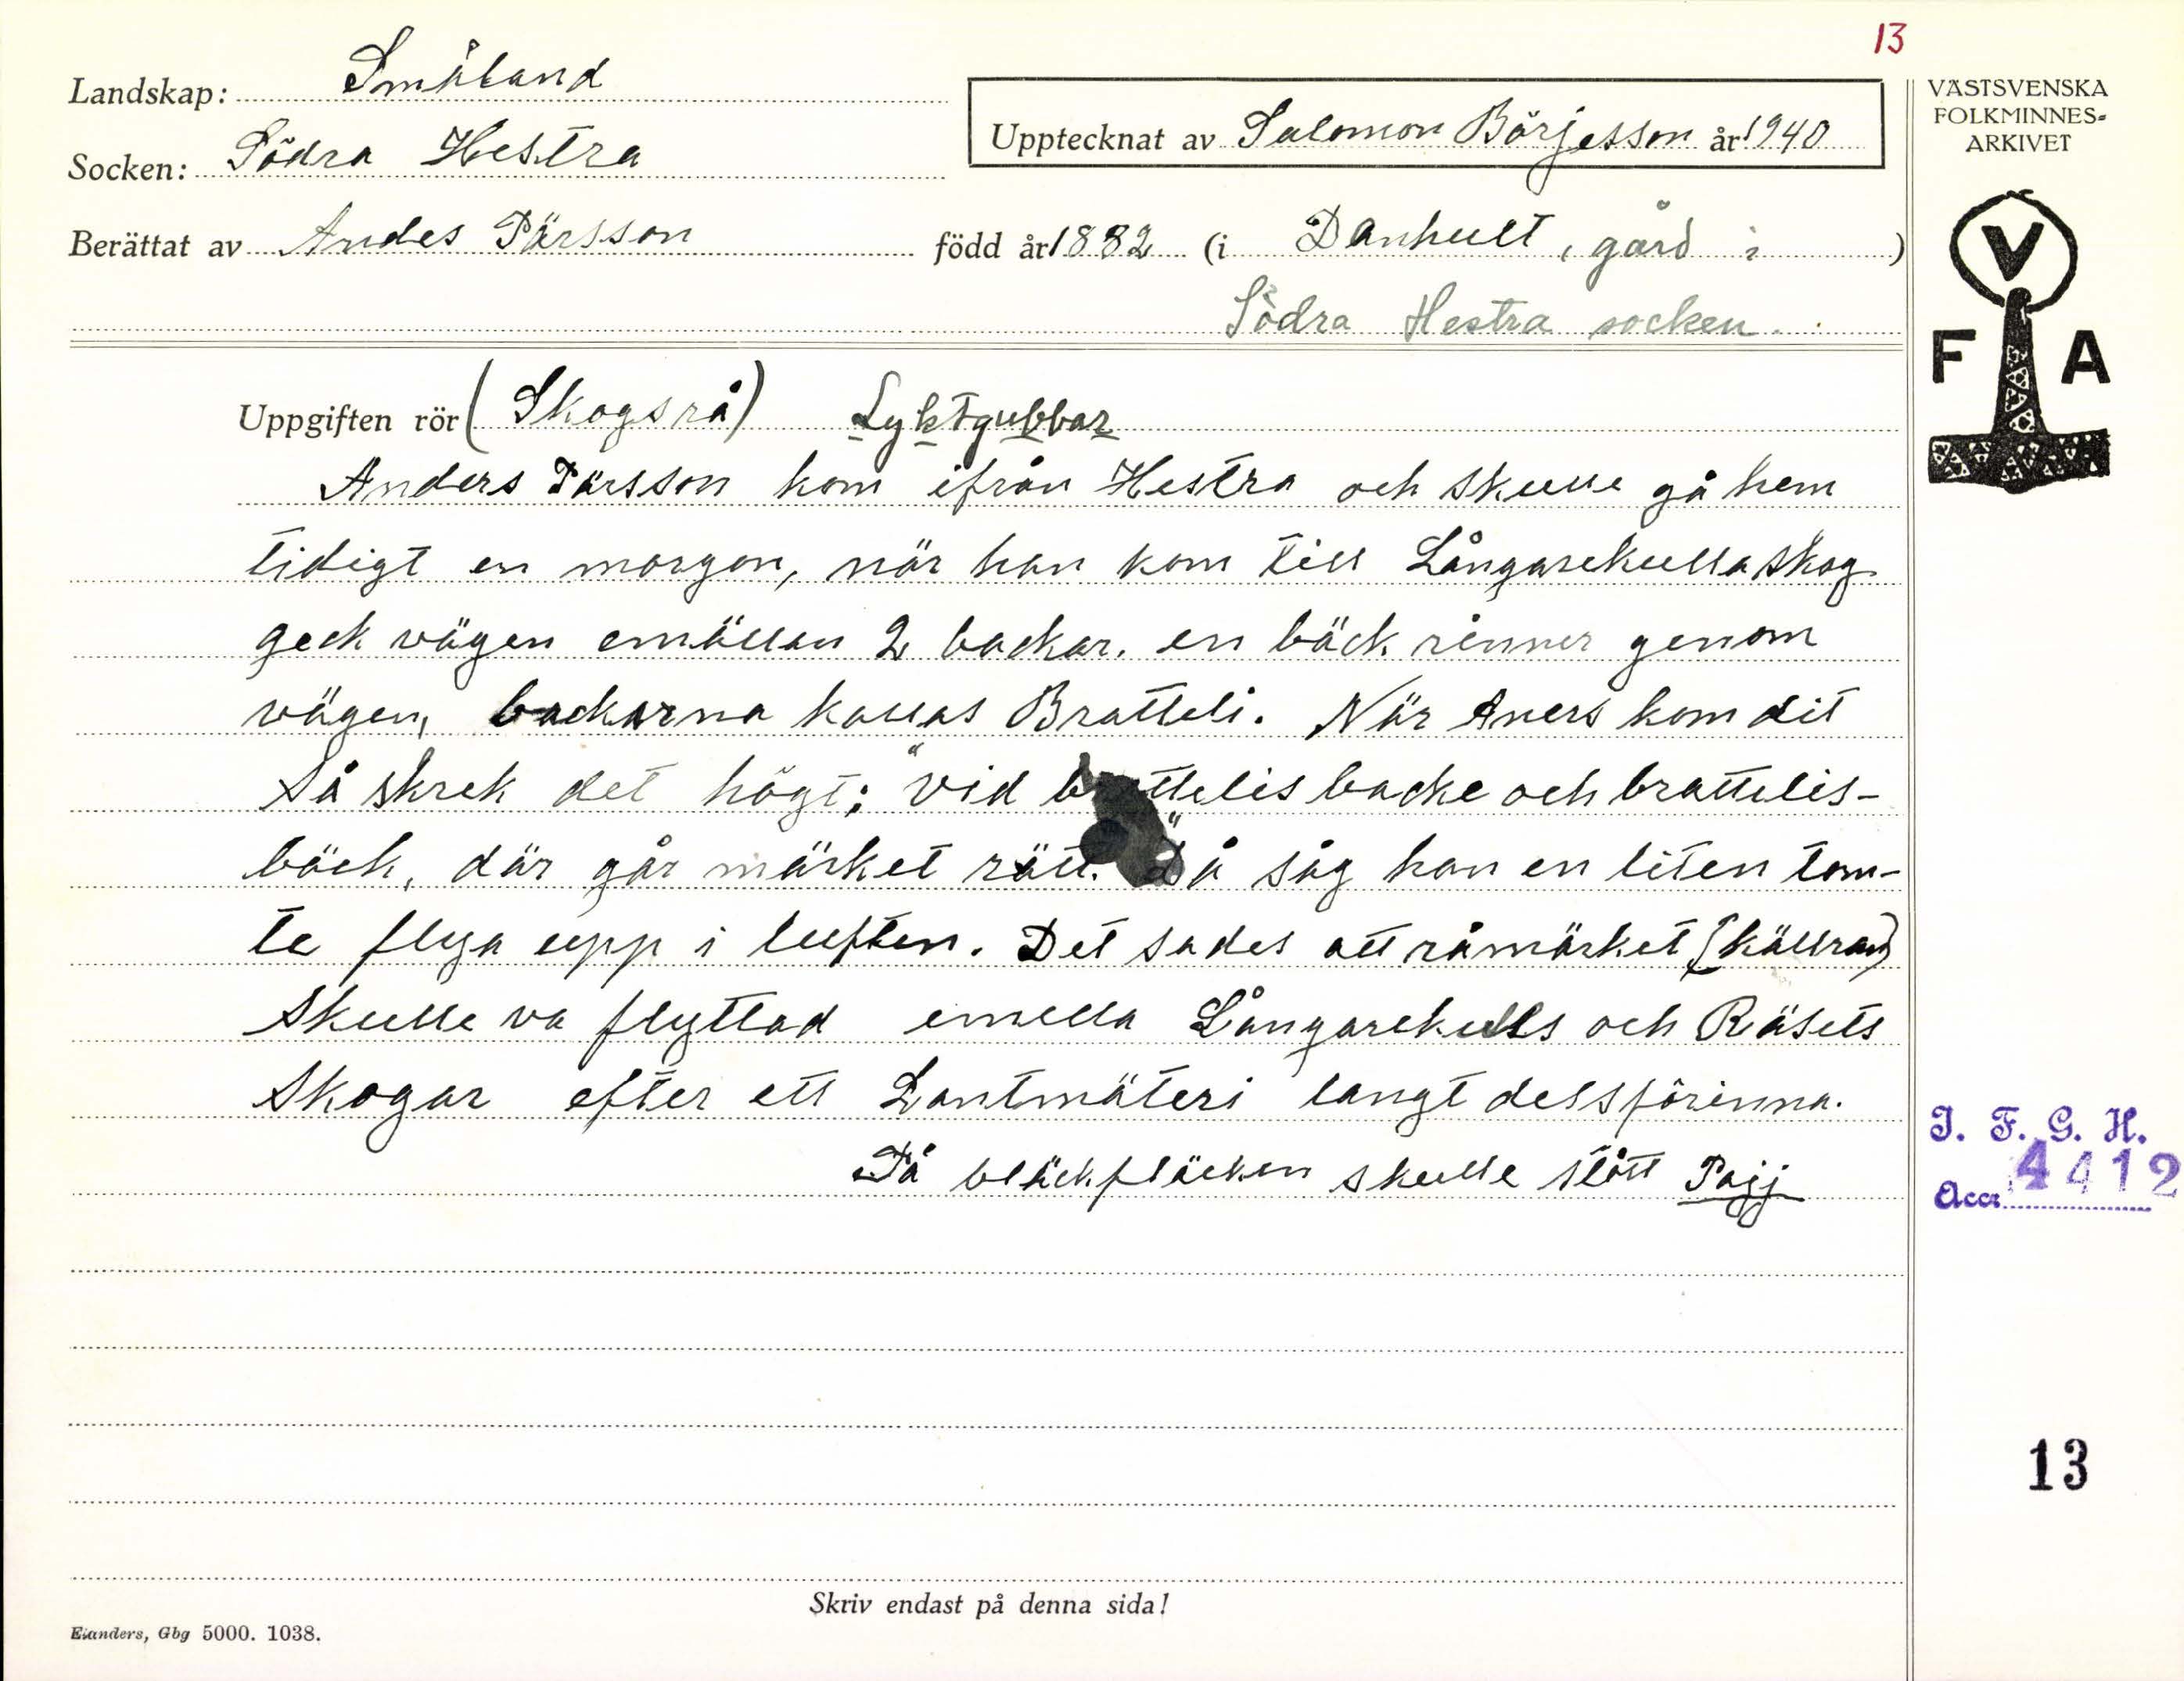 13
Landskap: Småland
Socken: Södra Hestra
Upptecknat av Salomon Börjesson år 1940
Berättat av Andes Pärsson född år 1882 (i Danhult, gård i )
Södra Hestra socken.
VÄSTSVENSKA
FOLKMINNES-
ARKIVET
V
F A
Uppgiften rör (Skogsrå) Lyktgubbar
Anders Pärsson kom ifrån Hestra och skulle gå hem
tidigt en morgon, när han kom till Långarekulla skog
geck vägen emällan 2 backar. en bäck rinner genom
vägen, backarna kallas Bratteli. När Aners kom dit
så skrek det högt: "vid brattelis backe och brattelis-
bäck, där går märket rätt." Då såg han en liten tom-
te flyga upp i luften. Det sades att råmärket (källran)
skulle va flyttad emella Långarekulls och Räsets
skogar efter ett Lantmäteri langt dessförinna.
På bläckfläcken skulle stått Pajj
I. F. G. H.
Acc. 4412
13
Skriv endast på denna sida!
Elanders, Gbg 5000. 1038.